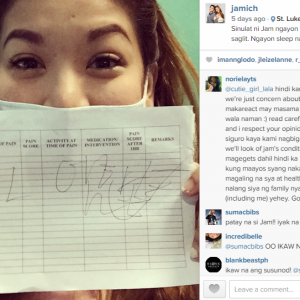 jamich
5 days ago · St. Luke
Sinulat ni Jam ngayon
saglit. Ngayon sleep na
imannglodo, jleizelanne_r_
norielayts
@cutie_girl_lala hindi ka
we're just concern about
makareact may masama
wala naman :) read carefo
and i respect your opinion
siguro kaya kami nagbiga
we'll look of jam's condti
magegets dahil hindi ka
kung maayos syang naka
magaling na sya at health
nalang siya ng family nya
(including me) yehey. Go
sumacbibs
patay na si Jam!! iyak na
incredibelle
@sumacbibs OO IKAW N
blankbeastph
ikaw na ang susunod!
Leave a comment...
OF PAIN
PAIN SCORE
ACTIVITY AT TIME OF PAIN
MEDICATION/ INTERVENTION
PAIN SCORE AFTER 1HR
REMARKS